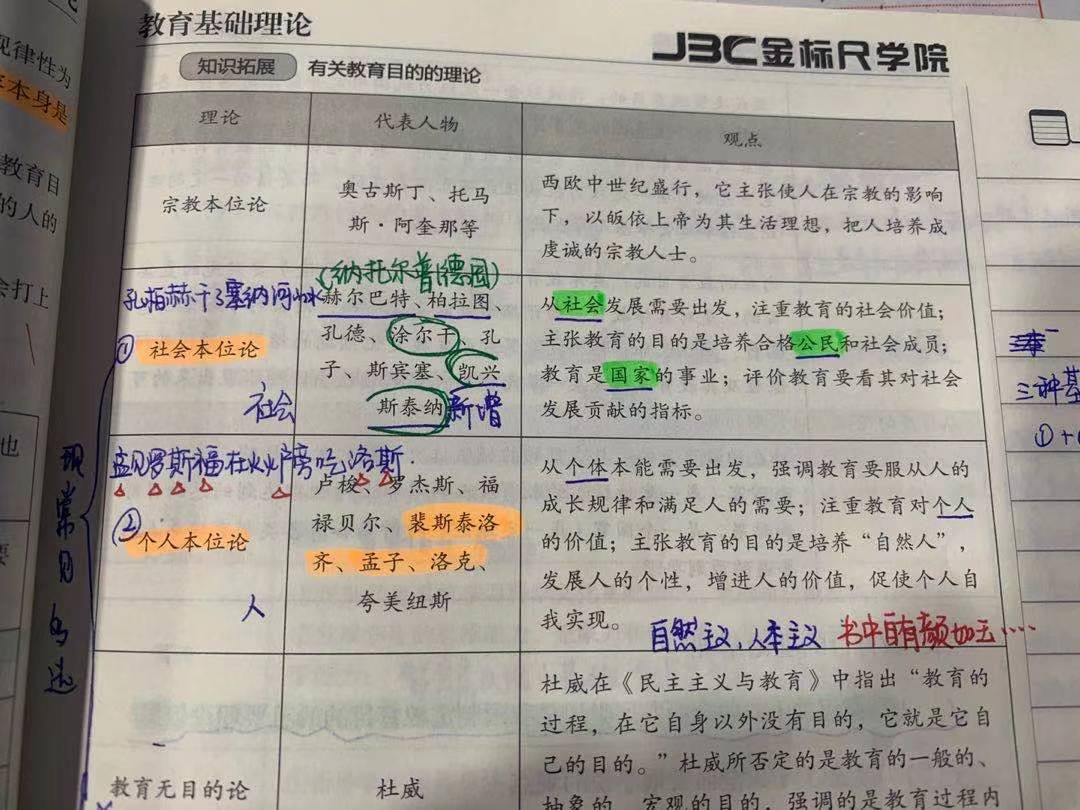 教育基础理论
JBC金标尺学院
知识拓展 有关教育目的的理论
理论 代表人物 观点
宗教本位论
奥古斯丁、托马
斯·阿奎那等
西欧中世纪盛行，它主张使人在宗教的影响
下，以皈依上帝为其生活理想，把人培养成
虔诚的宗教人士。
(纳托尔普德国)
孔柏赫干了塞纳河水
① 社会本位论
社会
赫尔巴特、柏拉图、
孔德、涂尔干、孔
子、斯宾塞、凯兴
斯泰纳 新增
从社会发展需要出发，注重教育的社会价值；
主张教育的目的是培养合格公民和社会成员；
教育是国家的事业；评价教育要看其对社会
发展贡献的指标。
孟见罗斯福在火炉旁吃洛斯
② 个人本位论
人
卢梭、罗杰斯、福
禄贝尔、裴斯泰洛
齐、孟子、洛克、
夸美纽斯
从个体本能需要出发，强调教育要服从人的
成长规律和满足人的需要；注重教育对个人
的价值；主张教育的目的是培养“自然人”，
发展人的个性，增进人的价值，促使个人自
我实现。
自然主义，人本主义 书中自有颜如玉····
教育无目的论
杜威
杜威在《民主主义与教育》中指出“教育的
过程，在它自身以外没有目的，它就是它自
己的目的。”杜威所否定的是教育的一般的、
抽象的、宏观的目的，强调的是教育过程内
现常见的迷
规律性为
本身是
教育目
的人的
会打上
也
要
三种基